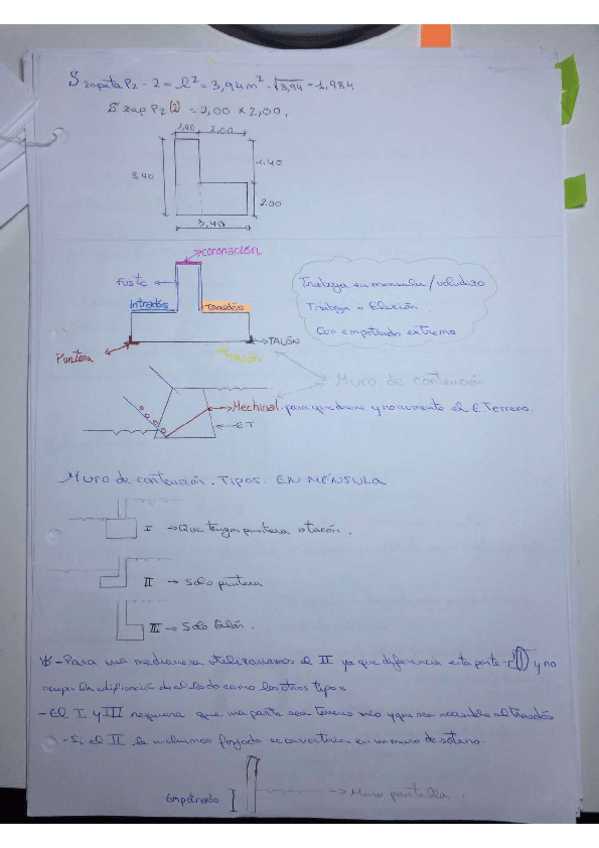 S zapata P2 - 2 = l² = 3,94 m² - √3,94 = 1,984
S zap P2 (2) = 2,00 × 2,00.
1,40 2,00
3,40
1.40
2.00
3,40
CORONACIÓN
Fuste
Intradós
Trasdós
Puntera
TALÓN
TACÓN
Trabaja en mensula/voladizo
Trabaja a Flexión
Con empotrado extremo
Muro de contención
Mechinal. para que drene y no aumente el E.Terreno.
ET
Muro de contención. TIPOS. EN MÉNSULA
I → Que tenga puntera o tacón.
II → Solo puntera
III → Solo talón.
- Para una medianera utilizaremos el II ya que diferencia esta parte y no
ocupa la edificación de al lado como los otros tipos
- El I y III requiere que una parte sea terreno mío y que sea accesible al trasdós
- Si el II le incluimos forjado se convertiría en un muro de sótano.
Empotrado
→ Muro pantalla.